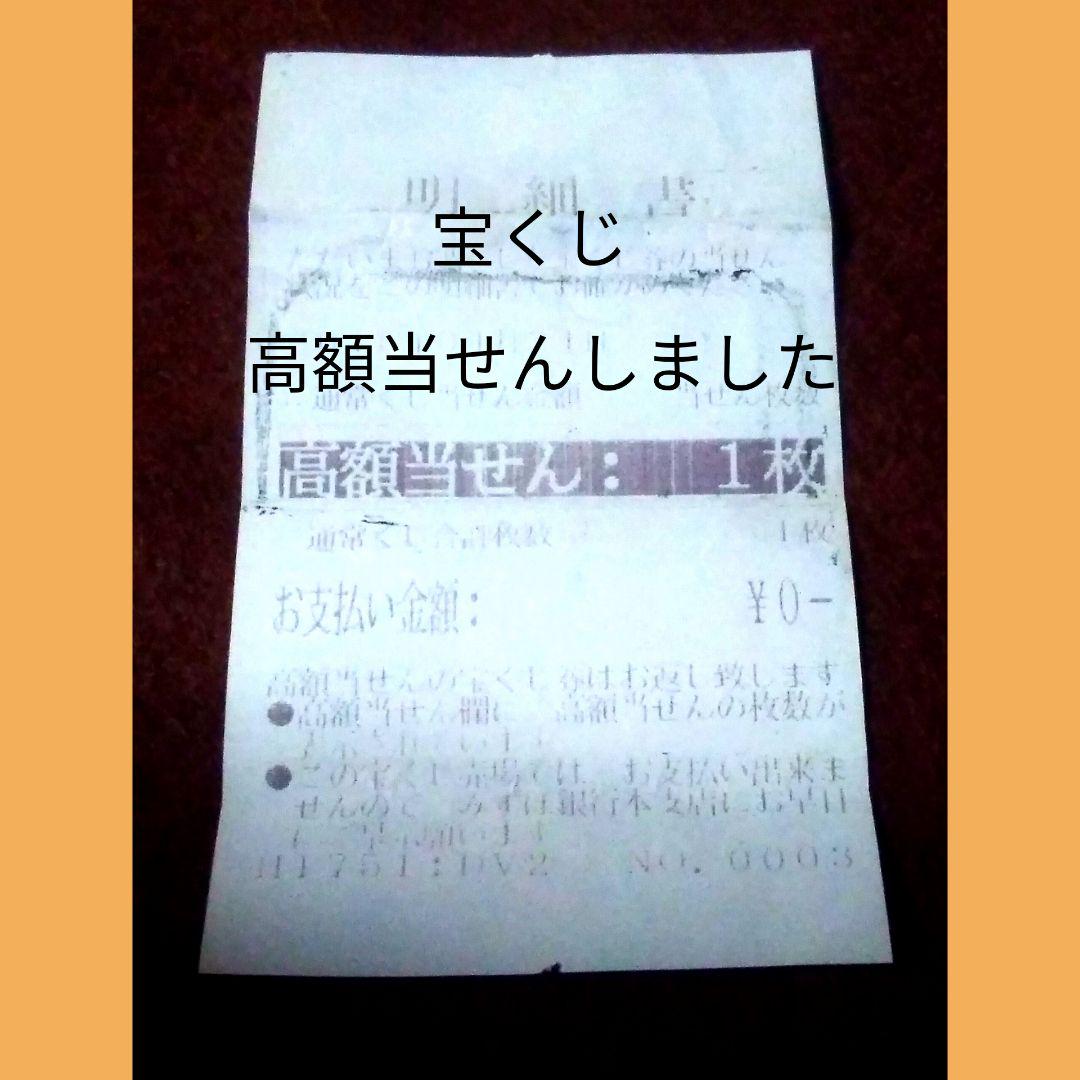 明細書
宝くじ
高額当せんしました
通常くじ当せん金額 当せん枚数
高額当せん: 1枚
通常くじ合計枚数 1枚
お支払い金額: ¥0-
高額当せんの宝くじ券はお返し致します
●高額当せん欄に、高額当せんの枚数が
●この宝くじ売場では、お支払い出来ま
せんので、みずほ銀行本支店にお早目
NO.0003